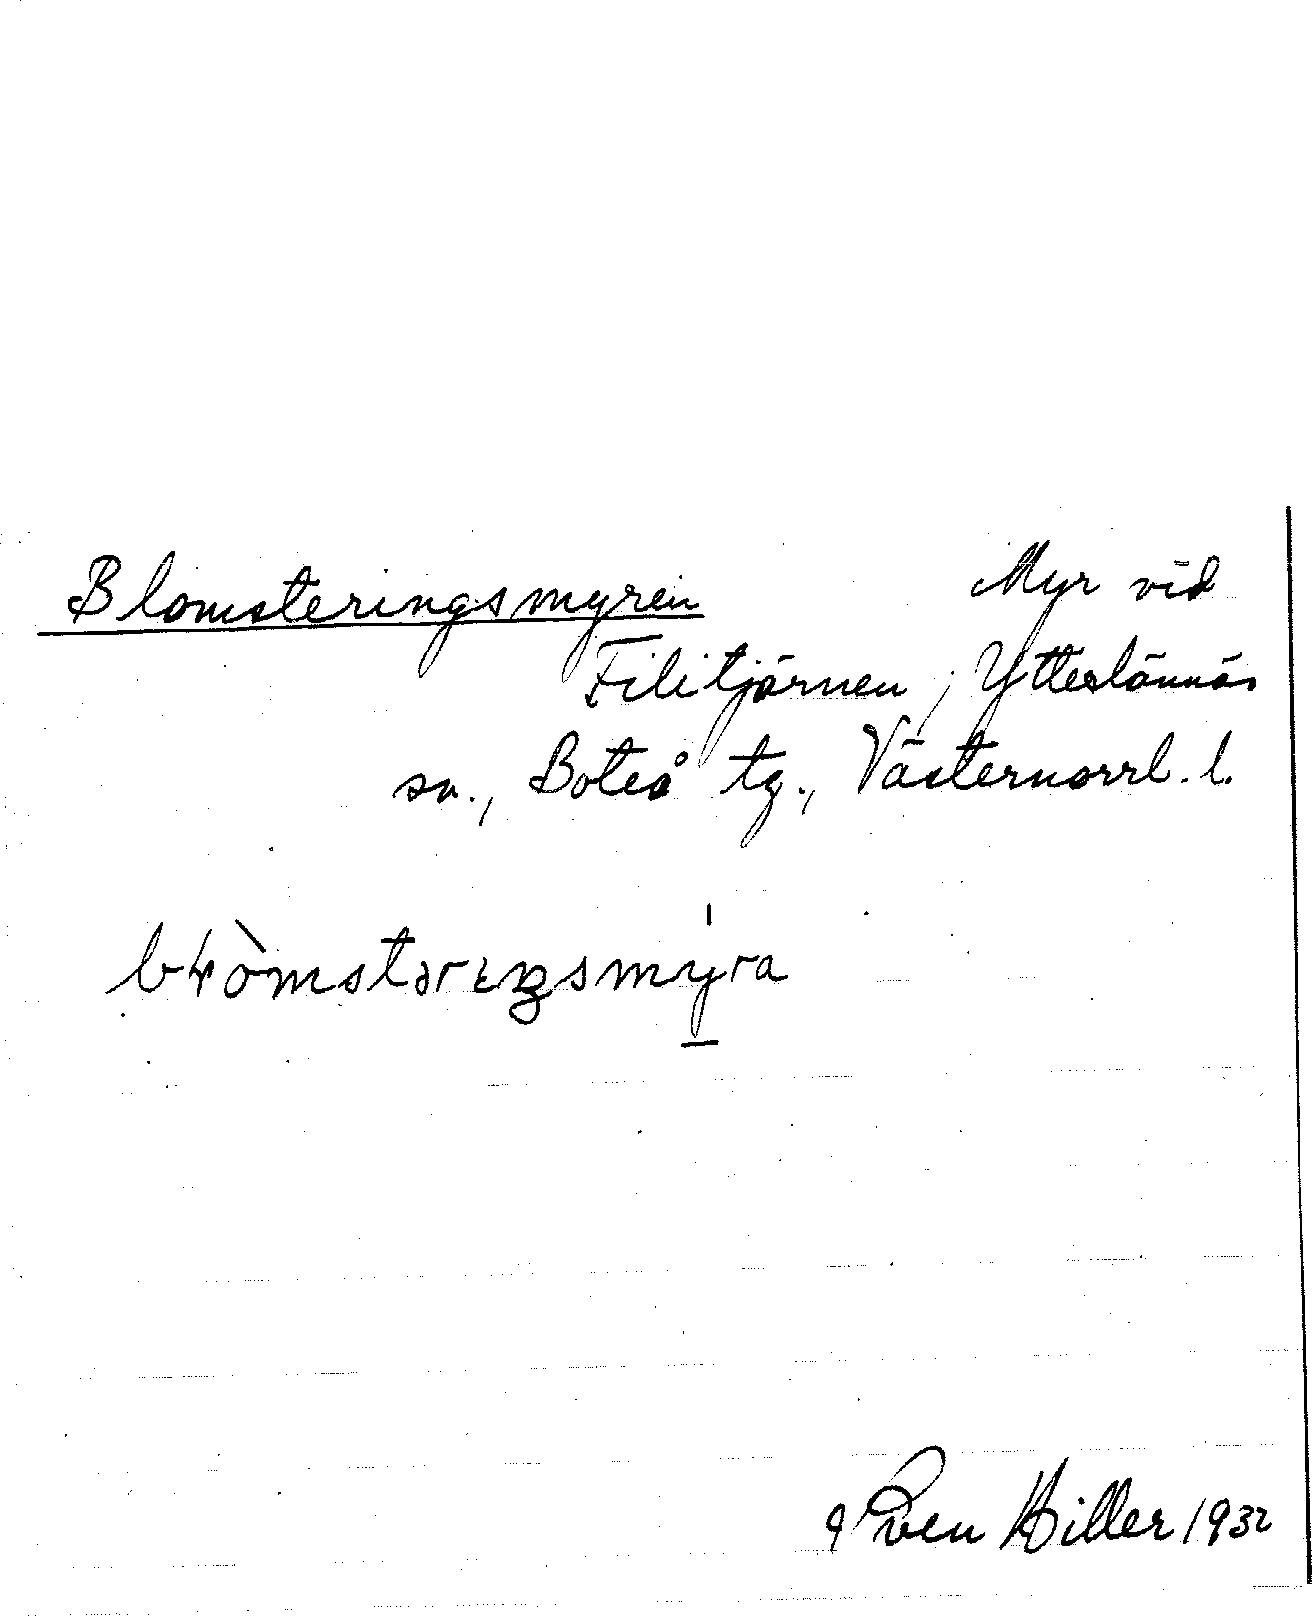 Blomsteringsmyren Myr vid
Filitjärnen, Ytterlännäs
sn., Boteå tg., Västernorrl. l.
Sven Hiller 1932